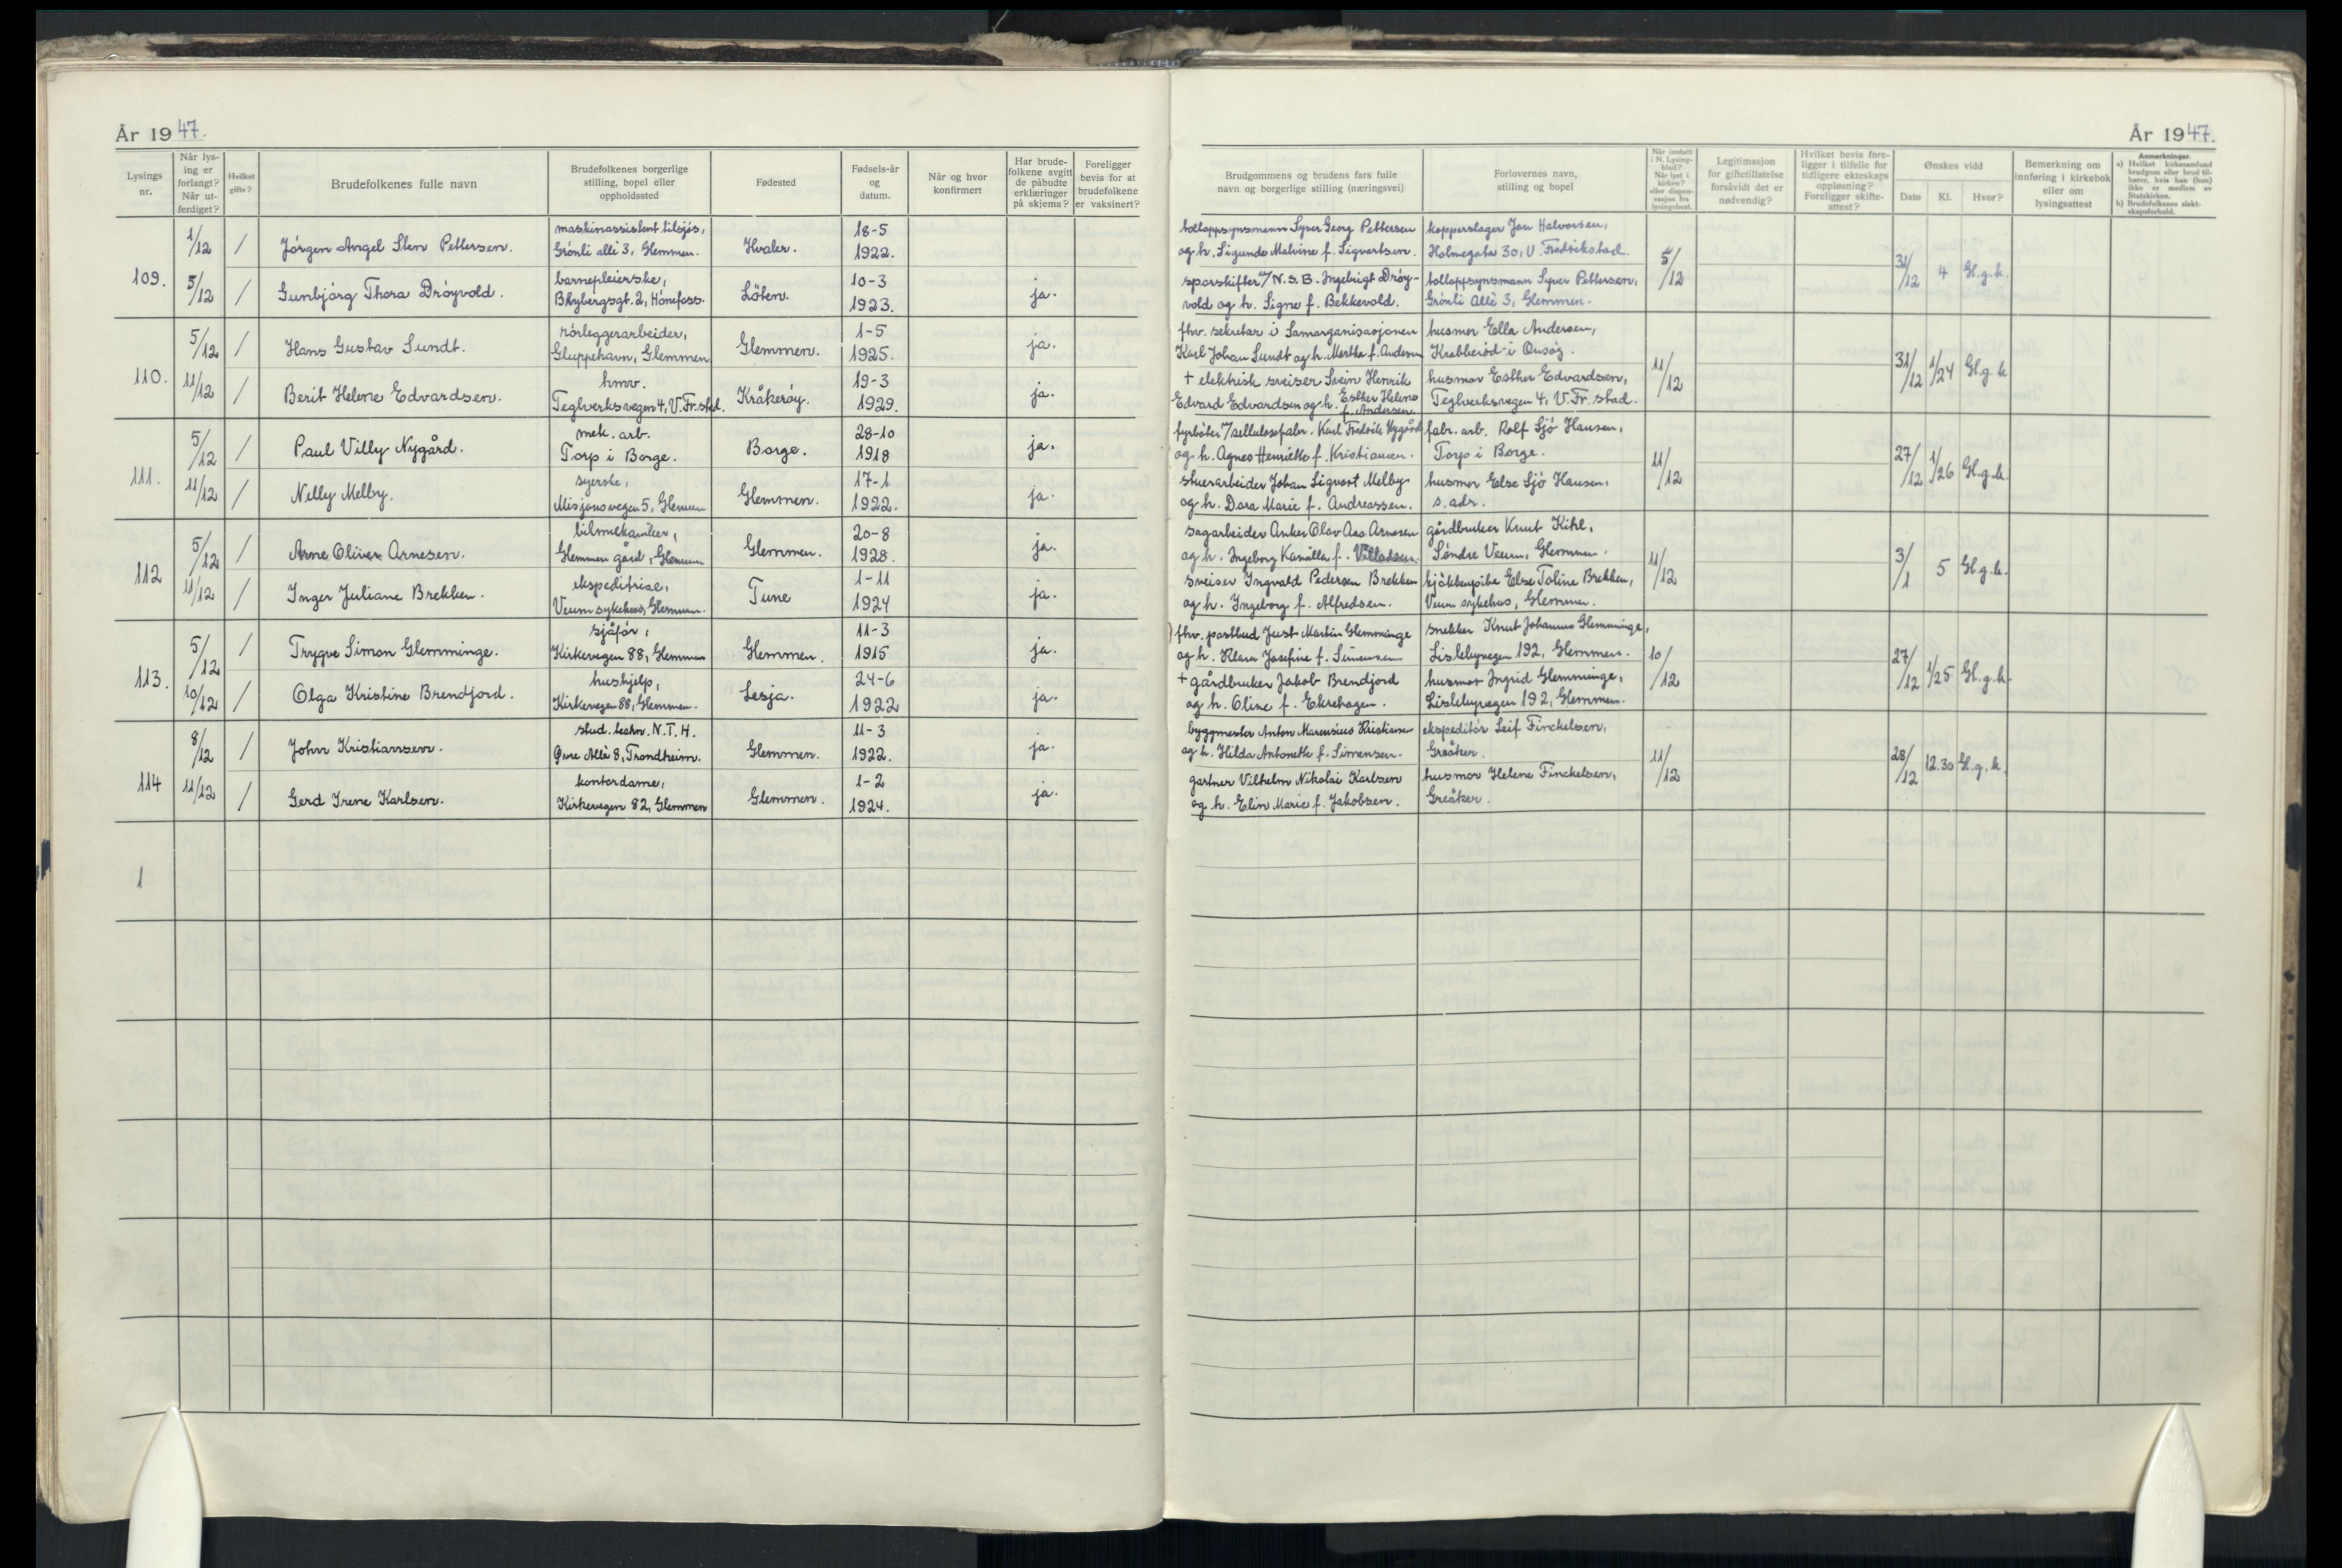 År 1947.
Lysings nr.
Når lysing er forlangt? Når utferdiget?
Hvilket gifte?
Brudefolkenes fulle navn
Brudefolkenes borgerlige stilling, bopel eller oppholdssted
Fødested
Fødsels-år og datum.
Når og hvor konfirmert
Har brudefolkene avgitt de påbudte erklæringer på skjema?
Foreligger bevis for at brudefolkene er vaksinert?
109.
1/12
/
Jörgen Angel Sten Pettersen.
maskinassistent tilsjös,
Grönli allè 3, Glemmen.
Hvaler.
18-5
1922.
5/12
/
Gunbjörg Thora Dröyvold.
barnepleierske,
Blybergsgt. 2, Hönefoss.
Löten.
10-3
1923.
ja.
110.
5/12
/
Hans Gustav Sundt.
rörleggerarbeider,
Gluppehavn, Glemmen.
Glemmen.
1-5
1925.
ja.
11/12
/
Berit Helene Edvardsen.
hmv.
Teglverksvegen 4, V.Fr.stad.
Kråkeröy.
19-3
1929.
ja.
111.
5/12
/
Paul Villy Nygård.
mek. arb.
Torp i Borge.
Borge.
28-10
1918
ja.
11/12
/
Nelly Melby.
syerske,
Misjonsvegen 5, Glemmen
Glemmen.
17-1
1922.
ja.
112
5/12
/
Arne Oliver Arnesen.
bilmekaniker,
Glemmen gård, Glemmen
Glemmen.
20-8
1928.
ja.
11/12
/
Inger Juliane Brekken.
ekspeditrise,
Veum sykehus, Glemmen.
Tune
1-11
1924
ja.
113.
5/12
/
Trygve Simon Glemminge.
sjåför,
Kirkevegen 88, Glemmen
Glemmen.
11-3
1915
ja.
10/12
/
Olga Kristine Brendjord.
hushjelp,
Kirkevegen 88, Glemmen.
Lesja.
24-6
1922
ja.
114
8/12
/
John Kristiansen.
stud. techn. N.T.H.
Övre Allè 8, Trondheim.
Glemmen.
11-3
1922.
ja.
11/12
/
Gerd Irene Karlsen.
kontordame,
Kirkevegen 82, Glemmen
Glemmen.
1-2
1924.
ja.
1
År 1947.
Brudgommens og brudens fars fulle navn og borgerlige stilling (næringsvei)
Forlovernes navn, stilling og bopel
Når inntatt i N. Lysingblad? Når lyst i kirken? eller dispensasjon fra lysingsbest.
Legitimasjon for giftetillatelse forsåvidt det er nødvendig?
Hvilket bevis foreligger i tilfelle for tidligere ekteskaps oppløsning? Foreligger skifteattest?
Ønskes vidd
Dato
Kl.
Hvor?
Bemerkning om innføring i kirkebok eller om lysingsattest
Anmerkninger.
a) Hvilket kirkesamfund brudgom eller brud tilhører, hvis han (hun) ikke er medlem av Statskirken.
b) Brudefolkenes slektskapsforhold.
tolloppsynsmann Syver Georg Pettersen
og h. Sigunda Malvine f. Sigvartsen.
kopperslager Jan Halvorsen,
Holmegata 30, V. Fredrikstad.
sporskifter v/ N.S.B. Ingebrigt Dröy-
vold og h. Signe f. Bekkevold.
tolloppsynsmann Syver Pettersen,
Grönli Allè 3, Glemmen.
5/12
31/12
4
Gl.g.k.
fhv. sekretær i Samorganisasjonen
Karl Johan Sundt og h. Martha f. Andersen
husmor Ella Andersen,
Krabberöd i Onsöy.
+ elektrisk sveiser Svein Henrik
Edvard Edvardsen og h. Esther Helene
f. Andersen.
husmor Esther Edvardsen,
Teglverksvegen 4, V.Fr.stad.
11/12
31/12
1/24
Gl.g.k
fyrböter v/ cellulosefabr. Karl Fredrik Nygård
og h. Agnes Henriette f. Kristiansen.
fabr. arb. Rolf Sjö Hansen,
Torp i Borge.
stuerarbeider Johan Sigvart Melby
og h. Dora Marie f. Andreassen.
husmor Else Sjö Hansen,
s. adr.
11/12
27/12
1/26
Gl.g.k.
sagarbeider Anker Olav Aas Arnesen
og h. Ingeborg Kamilla f. Villadsen.
gårdbruker Knut Kihl,
Söndre Veum, Glemmen.
sveiser Ingvald Pedersen Brekken
og h. Ingeborg f. Alfredsen.
kjökkenpike Else Toline Brekken,
Veum sykehus, Glemmen.
11/12
3/1
5
Gl.g.k.
fhv. postbud Just Martin Glemminge
og h. Klara Josefine f. Simensen
snekker Knut Johannes Glemminge,
Lislebyvegen 192, Glemmen.
+ gårdbruker Jakob Brendjord
og h. Oline f. Ekrehagen.
husmor Ingrid Glemminge,
Lislebyvegen 192, Glemmen.
10/12
27/12
1/25
Gl.g.k.
byggmester Anton Marensius Kristiansen
og h. Hilda Antonette f. Simensen.
ekspeditör Leif Finckelsen,
Greåker.
gartner Vilhelm Nikolai Karlsen
og h. Elin Marie f. Jakobsen.
husmor Helene Finckelsen,
Greåker.
11/12
28/12
12.30
Gl.g.k.